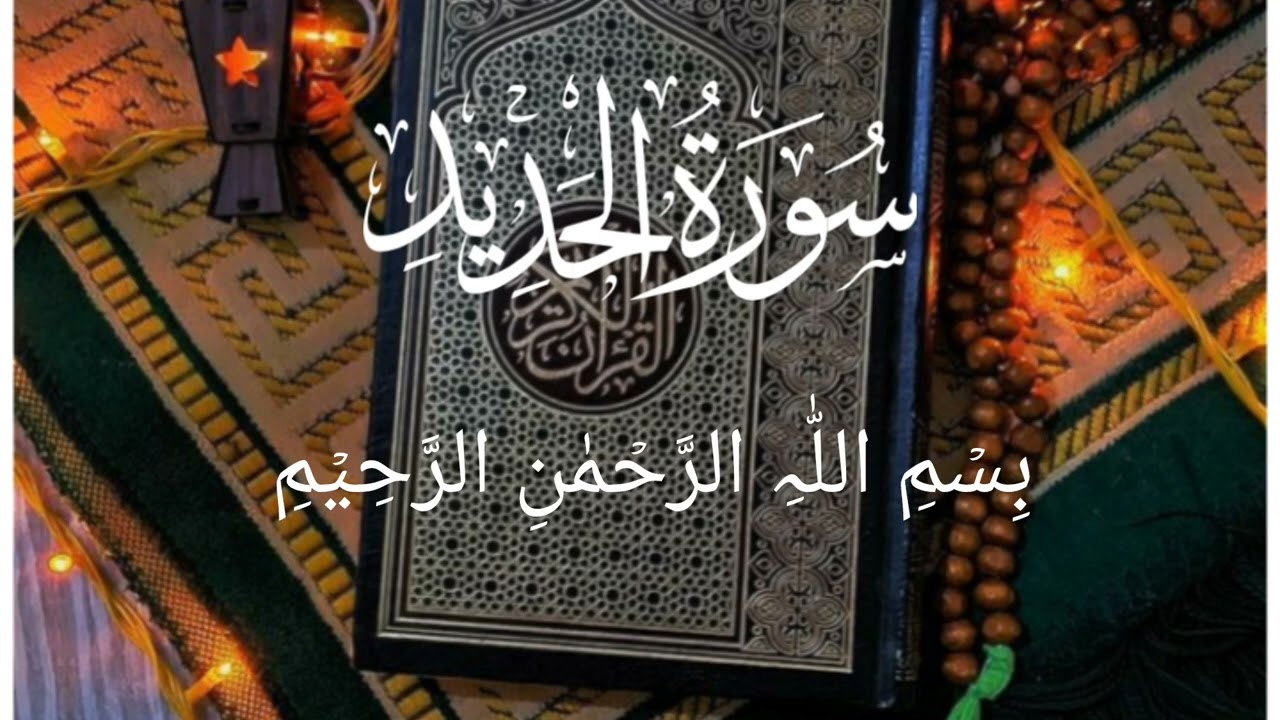 سُورَةُ الحَدِيدِ
القرآن الكريم
بِسْمِ اللّٰہِ الرَّحْمٰنِ الرَّحِیْمِ